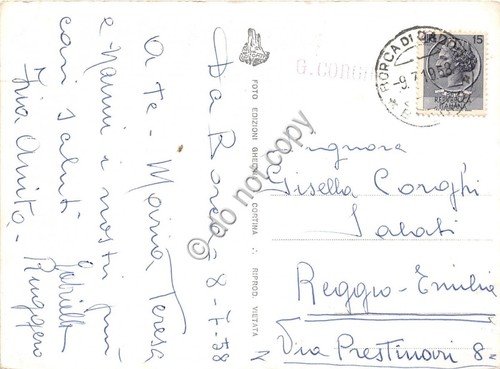 Da Borca, 8-7-58
a te - Maria Teresa
e Nanni i nostri più
cari saluti
Zia Anita -
Gabriella
Ruggero
FOTO EDIZIONI GHEDINA CORTINA ∴ RIPROD. VIETATA
do not copy
BORCA DI CADORE
9.7.1958
15
Signora
Gisella Corghi
Salati
Reggio-Emilia
Via Prestinari 8=